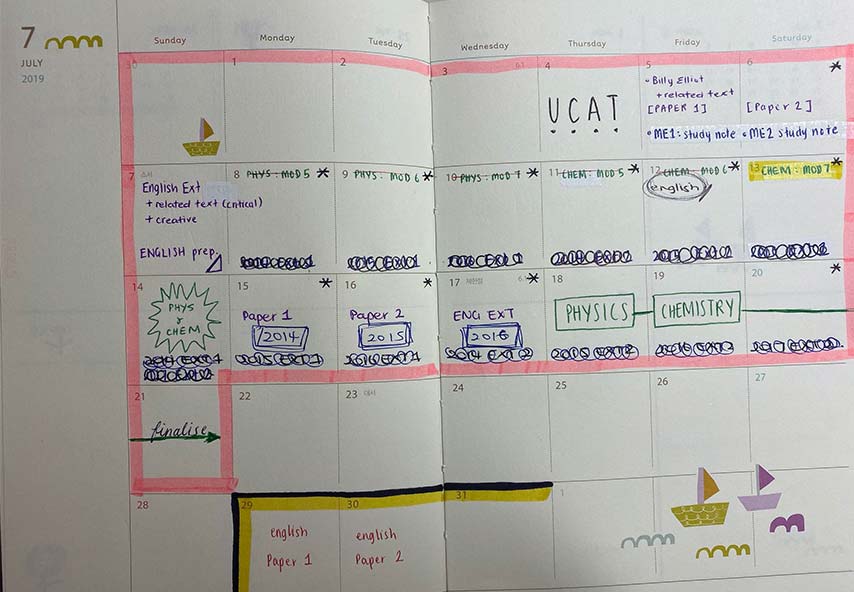 7
JULY
2019
Sunday
Monday
Tuesday
Wednesday
Thursday
Friday
Saturday
30
1
2
3
4
UCAT
5
Billy Elliot
+ related text
[PAPER 1]
ME1: study note
6
[Paper 2]
ME2 study note
7 소서
English Ext
+ related text (critical)
+ creative
ENGLISH prep.
8 PHYS: MOD 5
9 PHYS: MOD 6
10 PHYS: MOD 7
11 CHEM: MOD 5
12 CHEM: MOD 6
english
13 CHEM: MOD 7
14
PHYS
CHEM
15
Paper 1
2014
16
Paper 2
2015
17 제헌절
ENG EXT
2016
18
PHYSICS
19
CHEMISTRY
20
21
finalise
22
23 대서
24
25
26
27
28
29
english
Paper 1
30
english
Paper 2
31
1